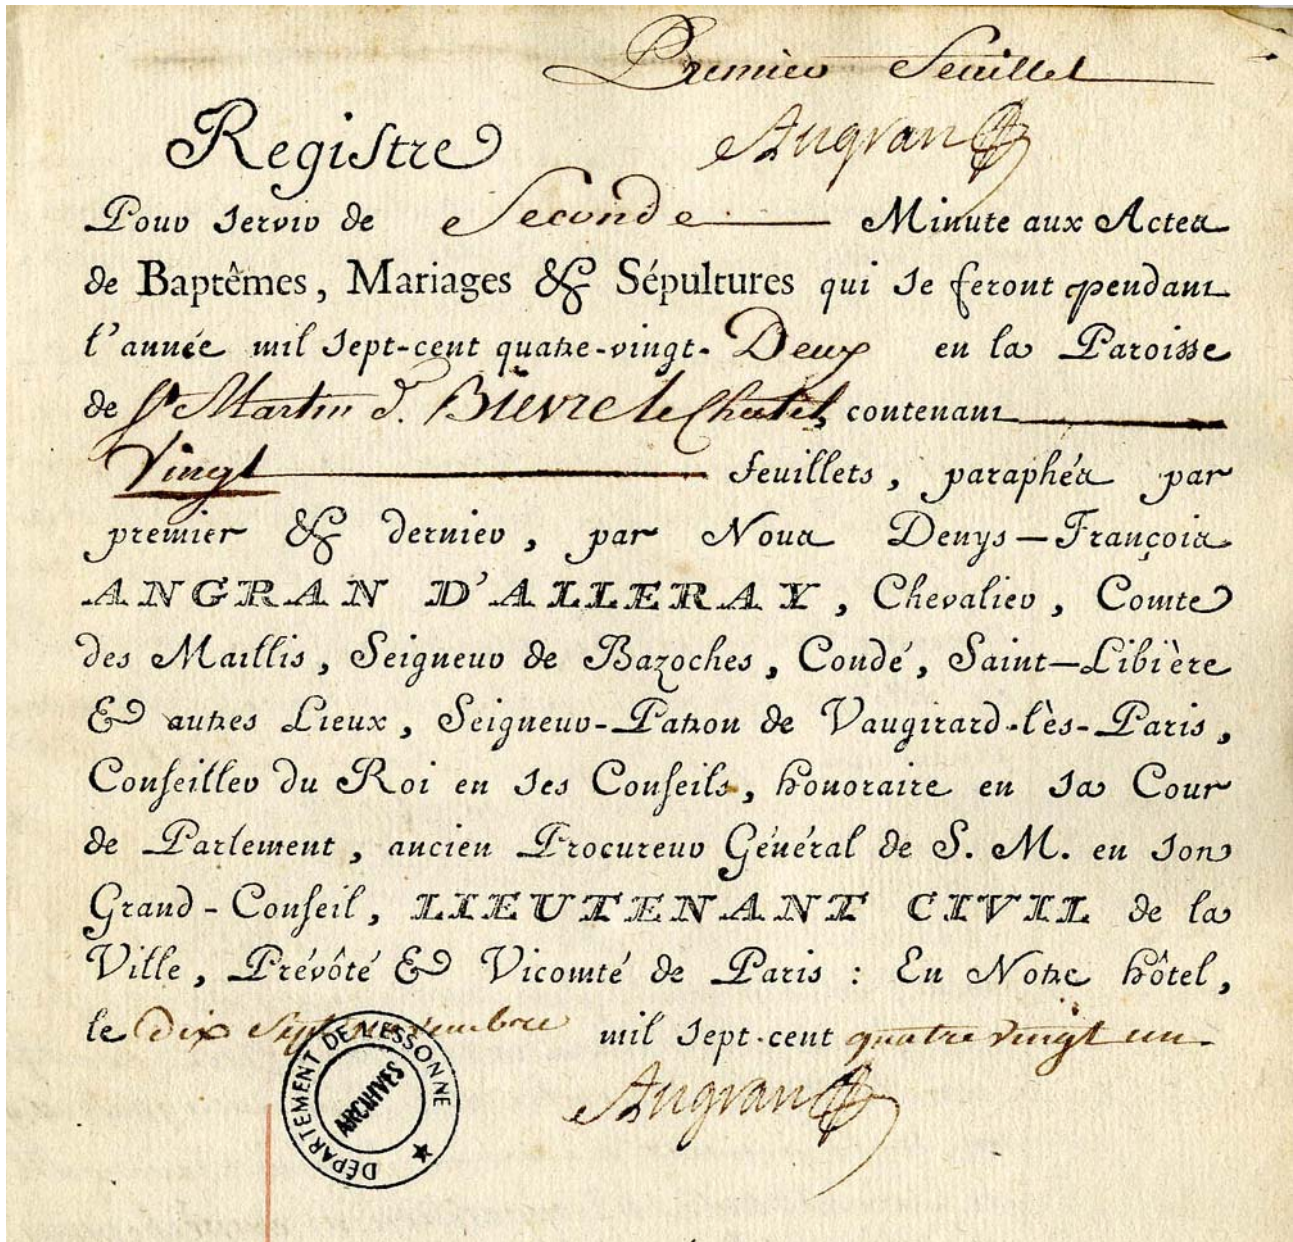 Premier feuillet
Angran
Registre
Pour servir de Seconde Minute aux Actes
de Baptêmes, Mariages & Sépultures qui se feront pendant
l'année mil sept-cent quatre-vingt-Deux en la Paroisse
de St Martin d. Bievre le Chatel, contenant
Vingt feuillets, paraphés par
premier & dernier, par Nous Denys-François
ANGRAN D'ALLERAY, Chevalier, Comte
des Maillis, Seigneur de Bazoches, Condé, Saint-Libière
& autres Lieux, Seigneur-Patron de Vaugirard-lès-Paris,
Conseiller du Roi en ses Conseils, honoraire en sa Cour
de Parlement, ancien Procureur Général de S. M. en son
Grand-Conseil, LIEUTENANT CIVIL de la
Ville, Prévôté & Vicomté de Paris : En Notre hôtel,
le dix Sept mil sept-cent quatre vingt un
DÉPARTEMENT DE L'ESSONNE
ARCHIVES
Angran